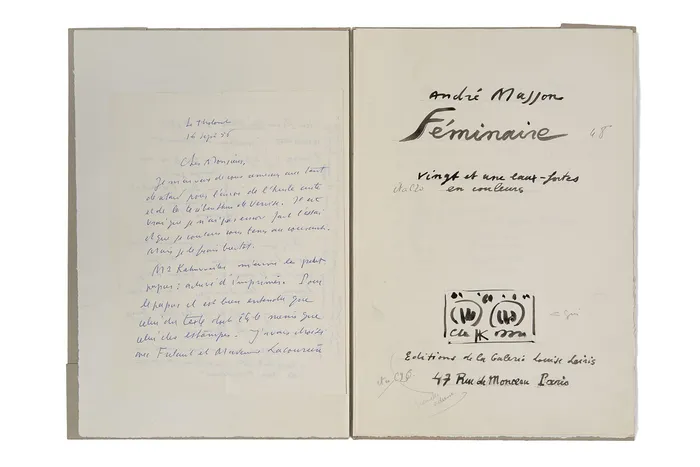 Le Tholonet
14 sept 56
Cher Monsieur,
Je m'excuse de vous remercier avec tant
de retard pour l'envoi de l'huile cuite
et de la térébenthine de Venise. Il est
vrai que je n'ai pas encore fait l'essai
et que je voulais vous tenir au courant.
Mais je le ferai bientôt.
Mr Kahnweiler m'envoie le petit
papier : outre d'imprimerie. Pour
le papier il est bien entendu que
celui du texte doit être le même que
celui des estampes. J'avais choisi
avec Frélaut et Madame Lacourière
André Masson
Féminaire
48
vingt et une eaux-fortes
en couleurs
Editions de la Galerie Louise Leiris
47 Rue de Monceau Paris